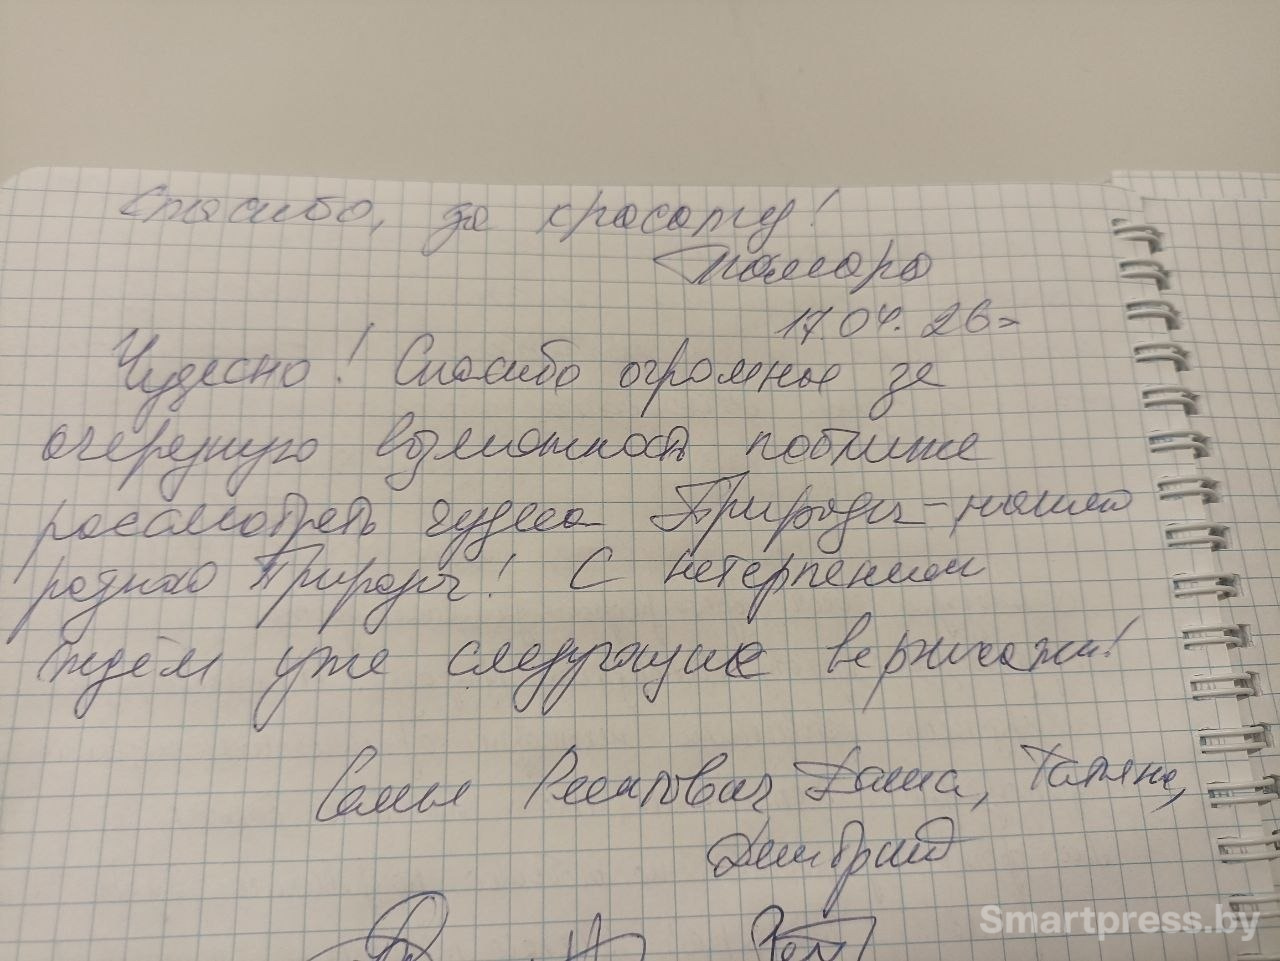 Спасибо, за красоту!
Тамара
17.04.26г
Чудесно! Спасибо огромное за
очередную возможность поближе
рассмотреть чудеса Природы - нашей
родной Природы! С нетерпением
ждём уже следующие вернисажи!
Семья Даша, Татьяна,
Дмитрий
Smartpress.by